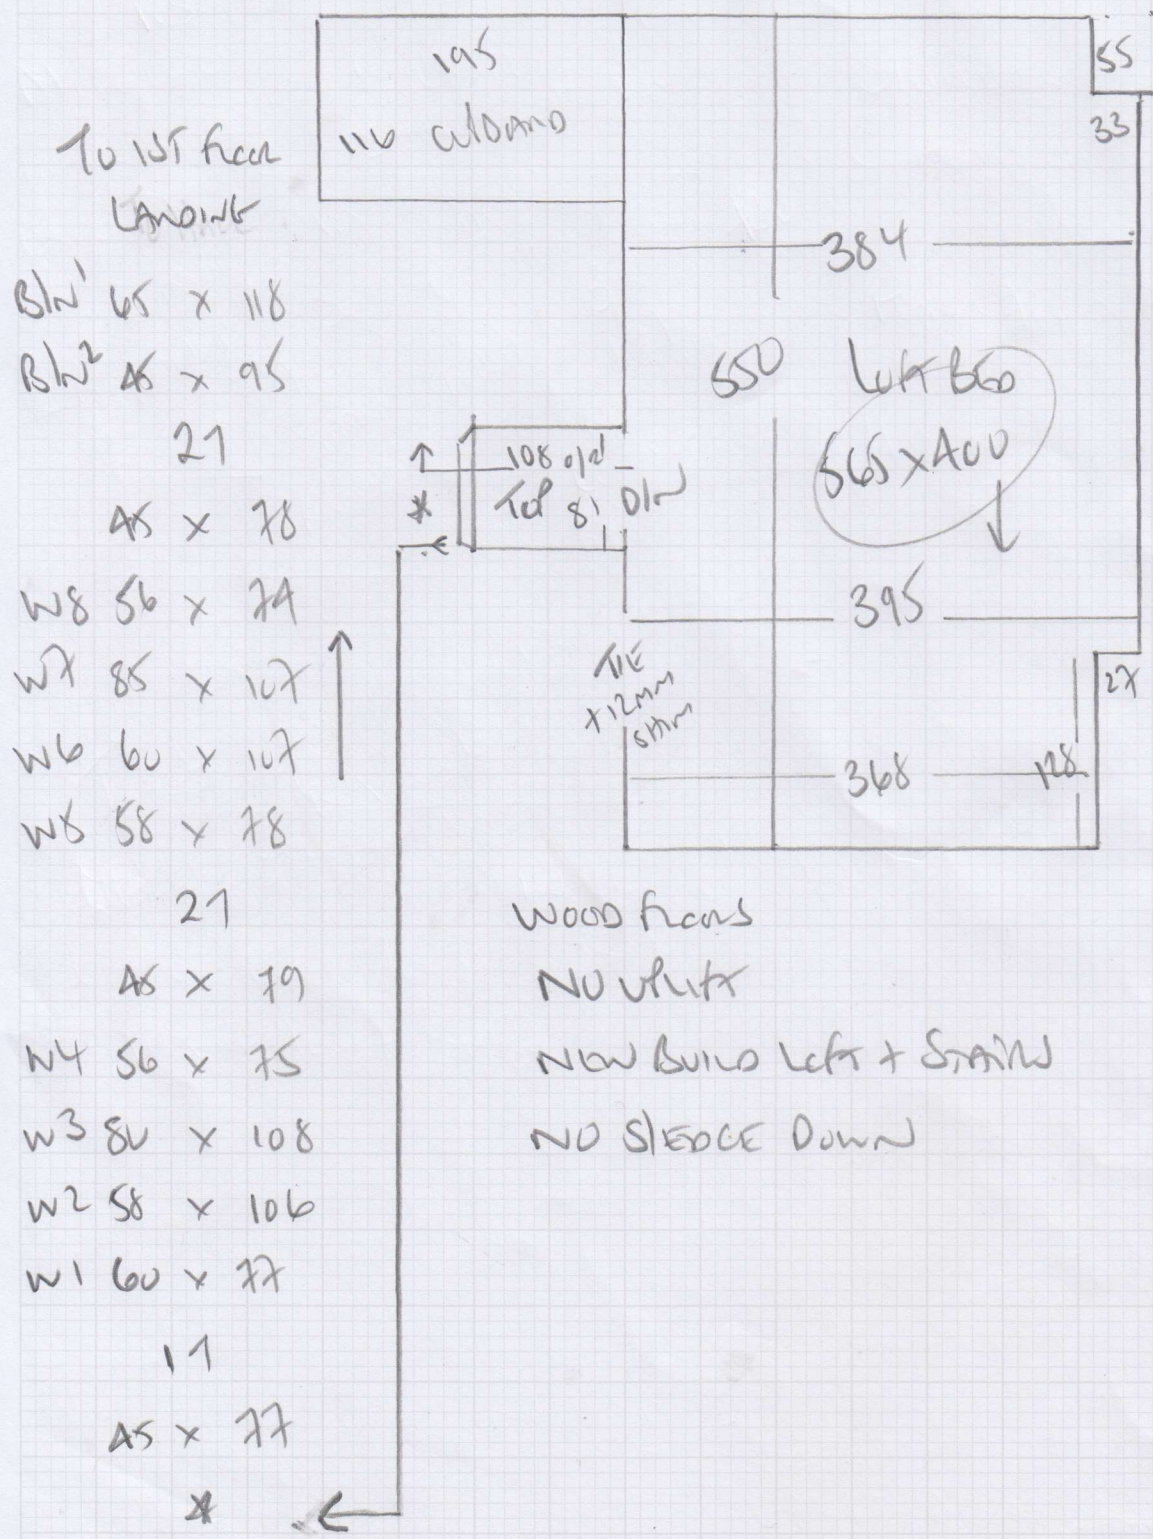 TO 1ST FLOOR
LANDING
B/N1 65 x 118
B/N2 45 x 95
21
45 x 78
W8 56 x 74
W7 85 x 107
W6 60 x 107
W5 58 x 78
21
45 x 79
W4 56 x 75
W3 80 x 108
W2 58 x 106
W1 60 x 77
11
45 x 77
*
195
116 C/BOARD
55
33
384
550
LOFT BED
565 x 400
108 o/d
TOP 81 D/N
*
395
TIE
+12MM
SHIM
27
368
128
WOOD FLOORS
NO UPLIFT
NEW BUILD LOFT + STAIRS
NO SLEDGE DOWN